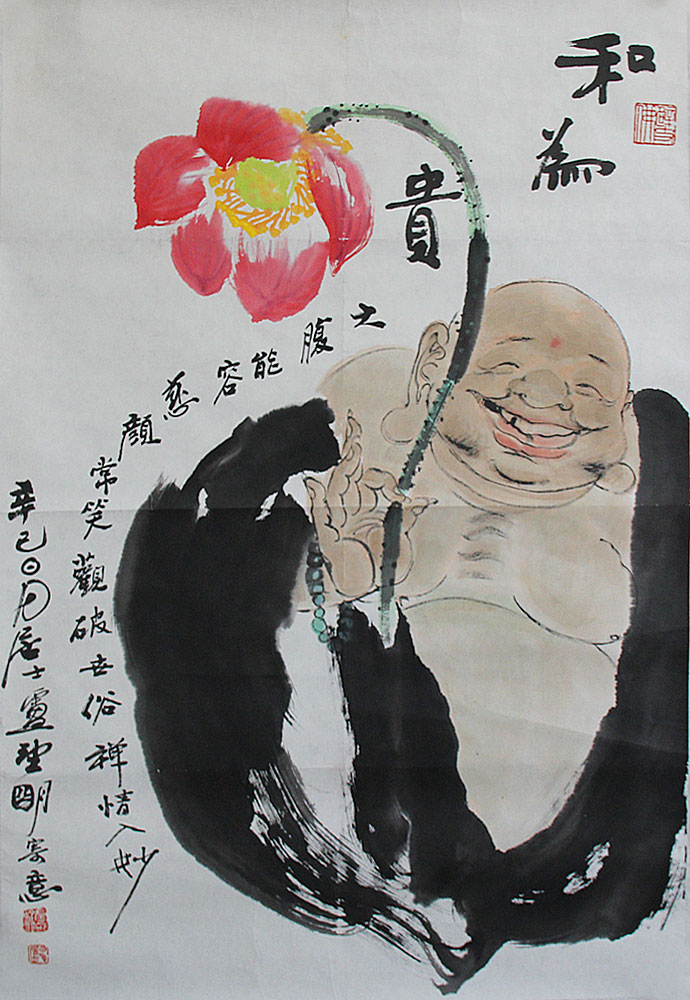 和為貴
大腹能容慈顏
常笑觀破世俗禪情入妙
辛巳〇月居士盧聖明寄意